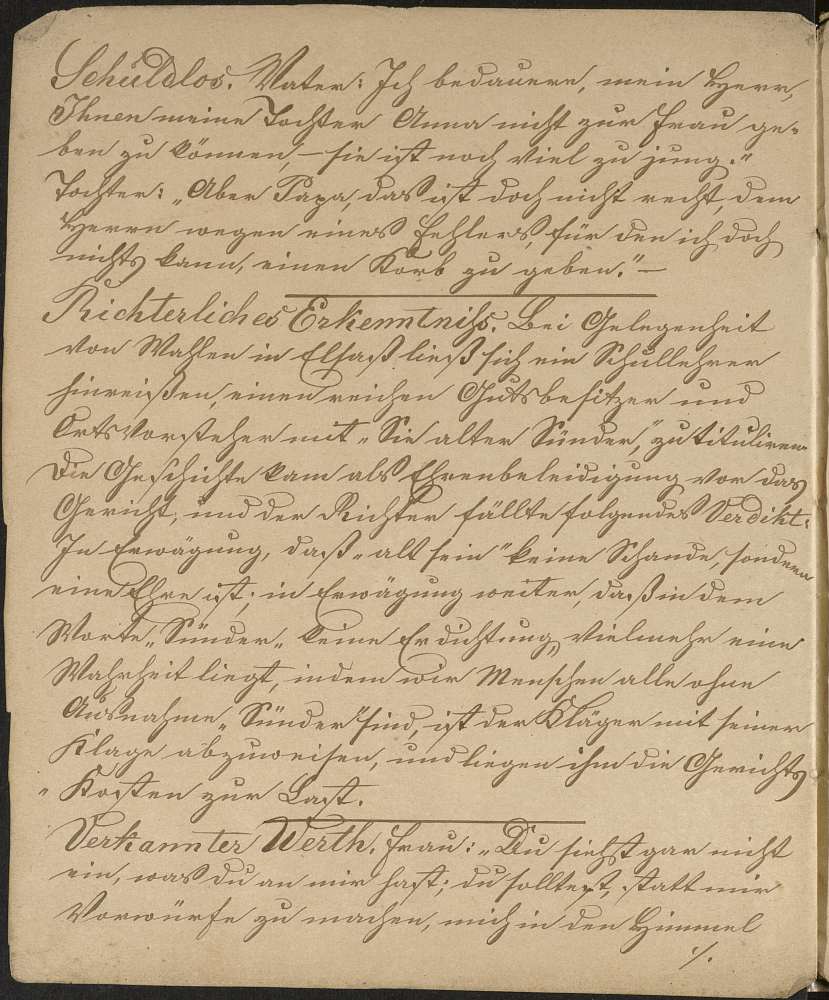 Schuldlos. Vater: Ich bedauere, mein Herr,
Ihnen meine Tochter Anna nicht zur Frau ge-
ben zu können, – sie ist noch viel zu jung."
Tochter: „Aber Papa, das ist doch nicht recht, dem
Herrn wegen eines Fehlers, für den ich doch
nichts kann, einen Korb zu geben." –
Richterliches Erkenntniß. Bei Gelegenheit
von Wahlen in Elsaß ließ sich ein Schullehrer
hinreißen, einen reichen Gutsbesitzer und
Ortsvorsteher mit „Sie alter Sünder," zu tituliren.
Die Geschichte kam als Ehrenbeleidigung vor das
Gericht, und der Richter fällte folgendes Verdikt:
In Erwägung, daß „alt sein" keine Schande, sondern
eine Ehre ist; in Erwägung weiter, daß in dem
Worte „Sünder„ keine Erdichtung, vielmehr eine
Wahrheit liegt, indem wir Menschen alle ohne
Ausnahme „Sünder" sind, ist der Kläger mit seiner
Klage abzuweisen, und liegen ihm die Gerichts
„ Kosten zur Last.
Verkannter Werth. Frau: „Du siehst gar nicht
ein, was du an mir hast; du solltest, statt mir
Vorwürfe zu machen, mich in den Himmel
·/.